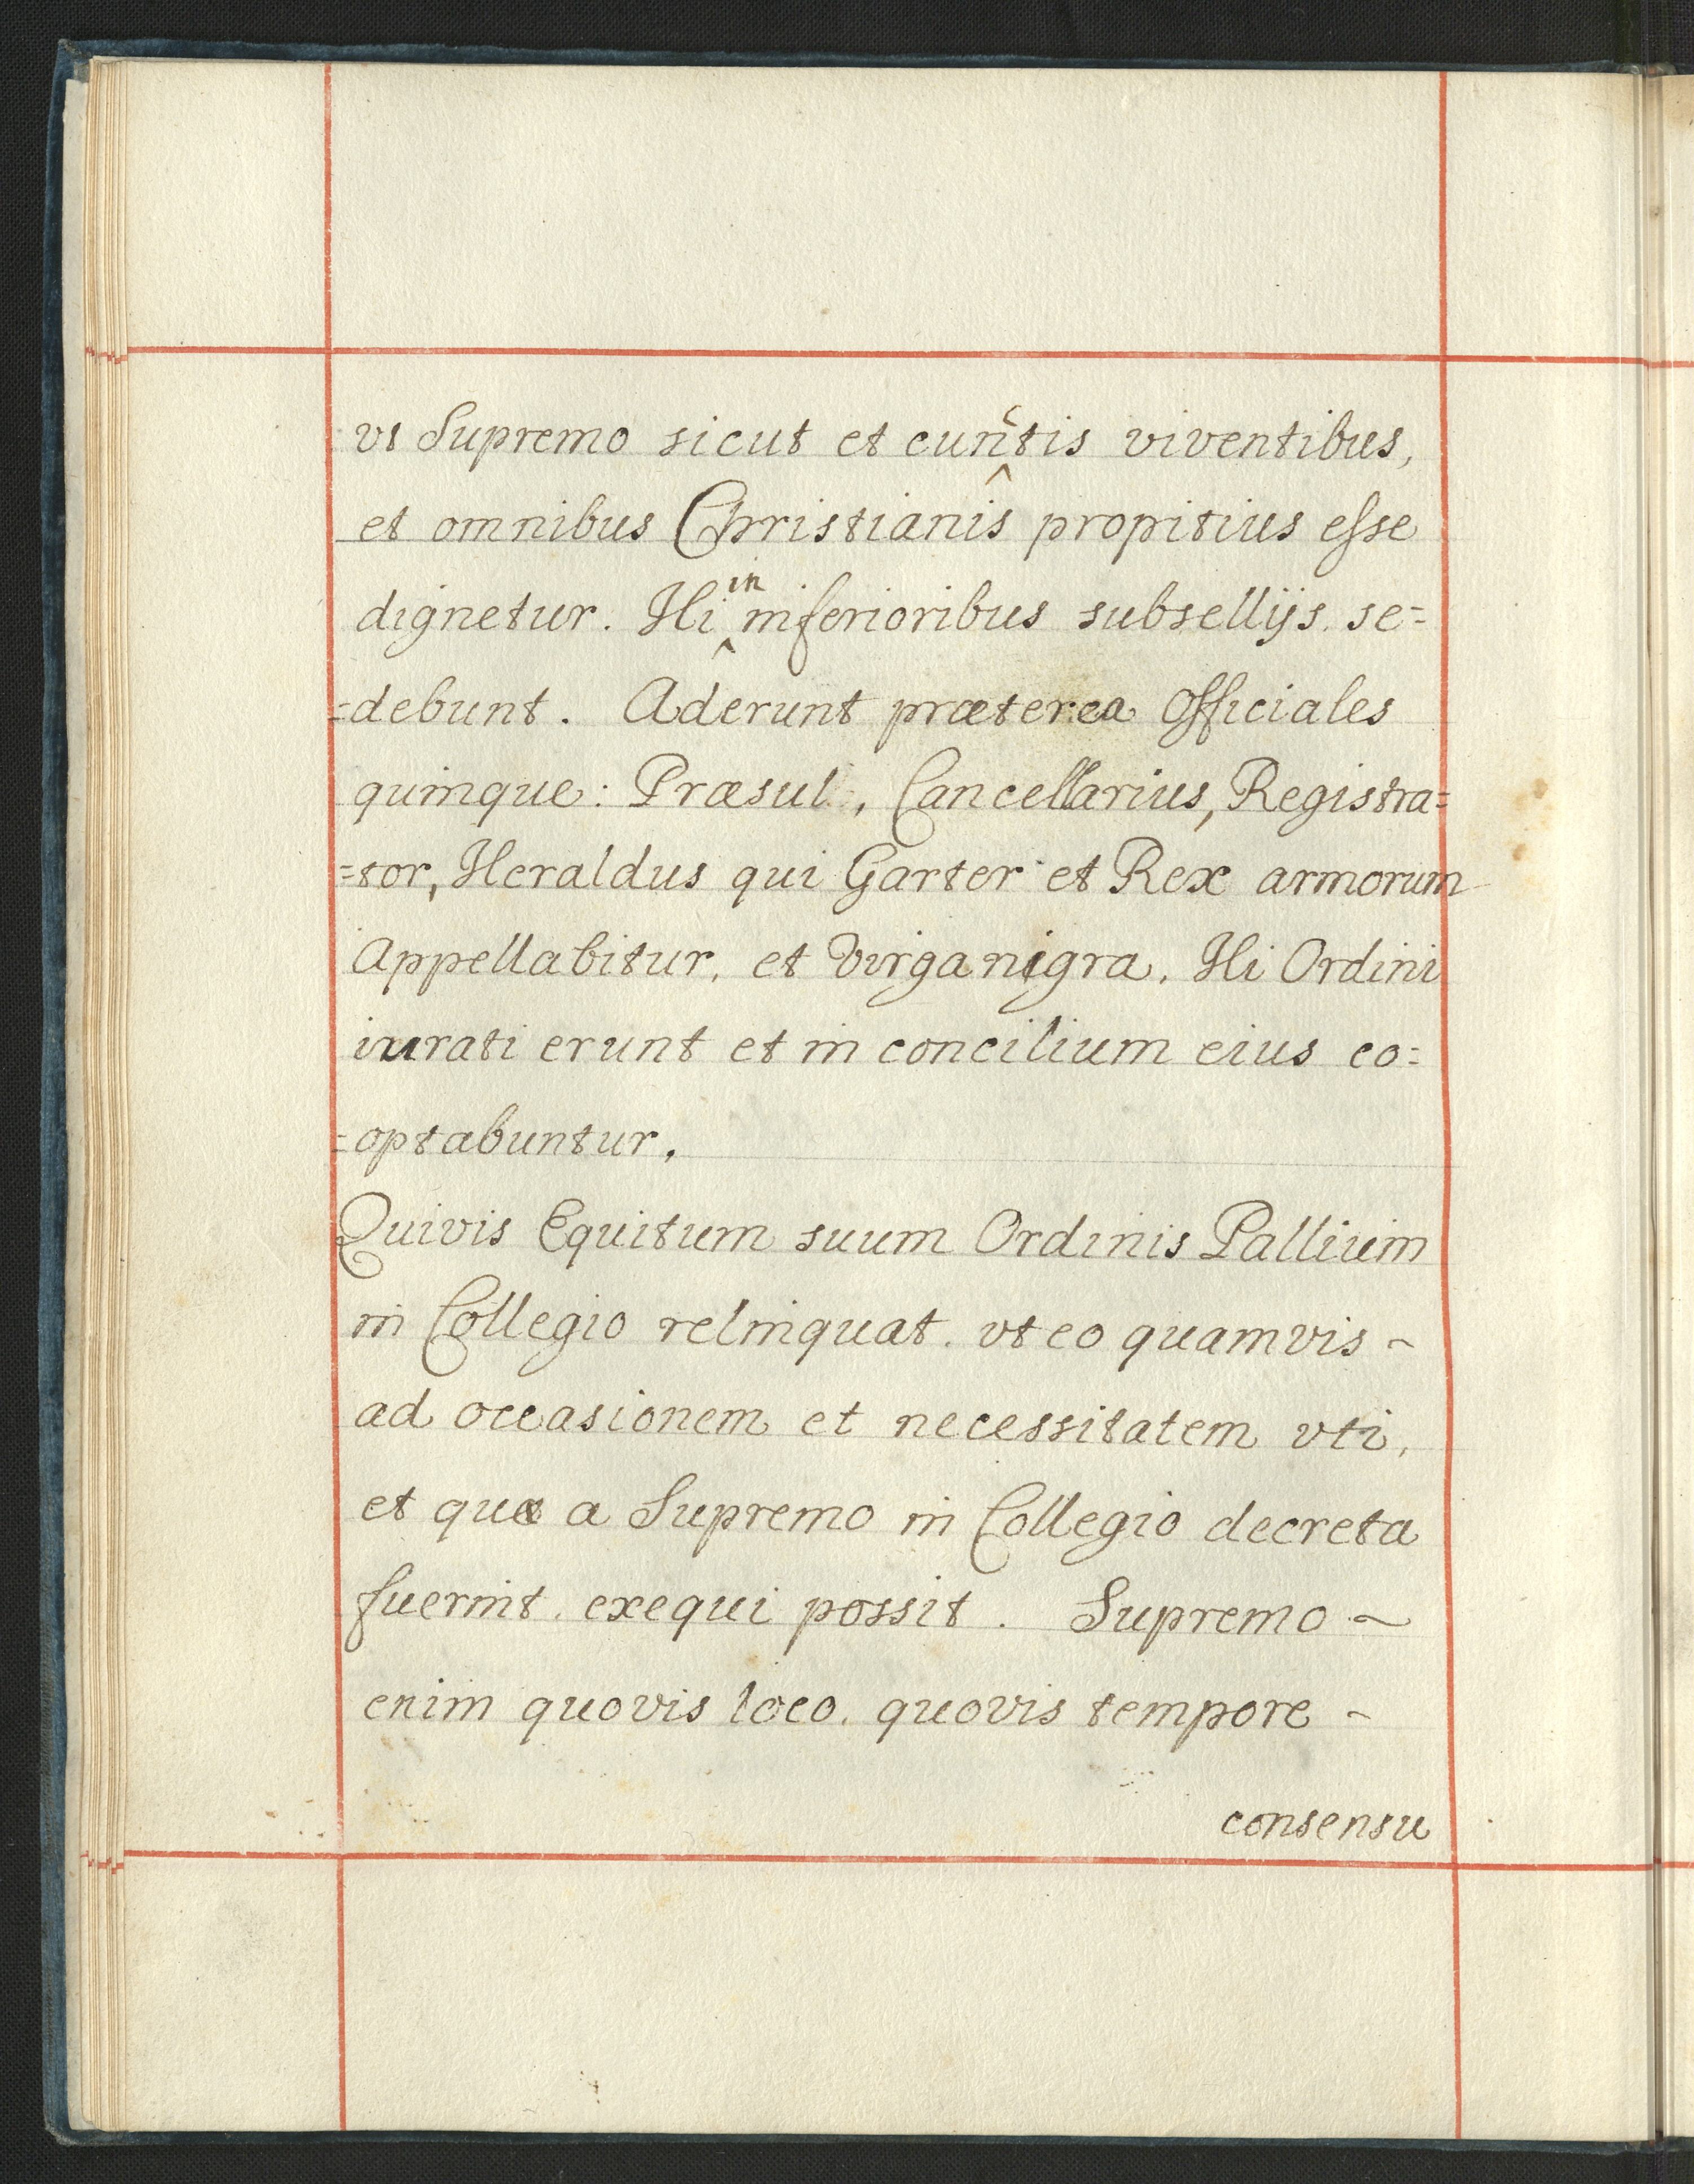 vt Supremo sicut et cunctis viventibus,
et omnibus Christianis propitius esse
dignetur. Hi in inferioribus subsellijs. se=
=debunt. Aderunt præterea Officiales
quinque: Præsul, Cancellarius, Registra=
=tor, Heraldus qui Garter et Rex armorum
Appellabitur, et Virga nigra. Hi Ordini
iurati erunt et in concilium eius co=
=optabuntur.
Quivis Equitum suum Ordinis Pallium
in Collegio relinquat. vt eo quamvis ~
ad occasionem et necessitatem vti,
et quæ a Supremo in Collegio decreta
fuerint. exequi possit. Supremo ~
enim quovis loco. quovis tempore ~
consensu